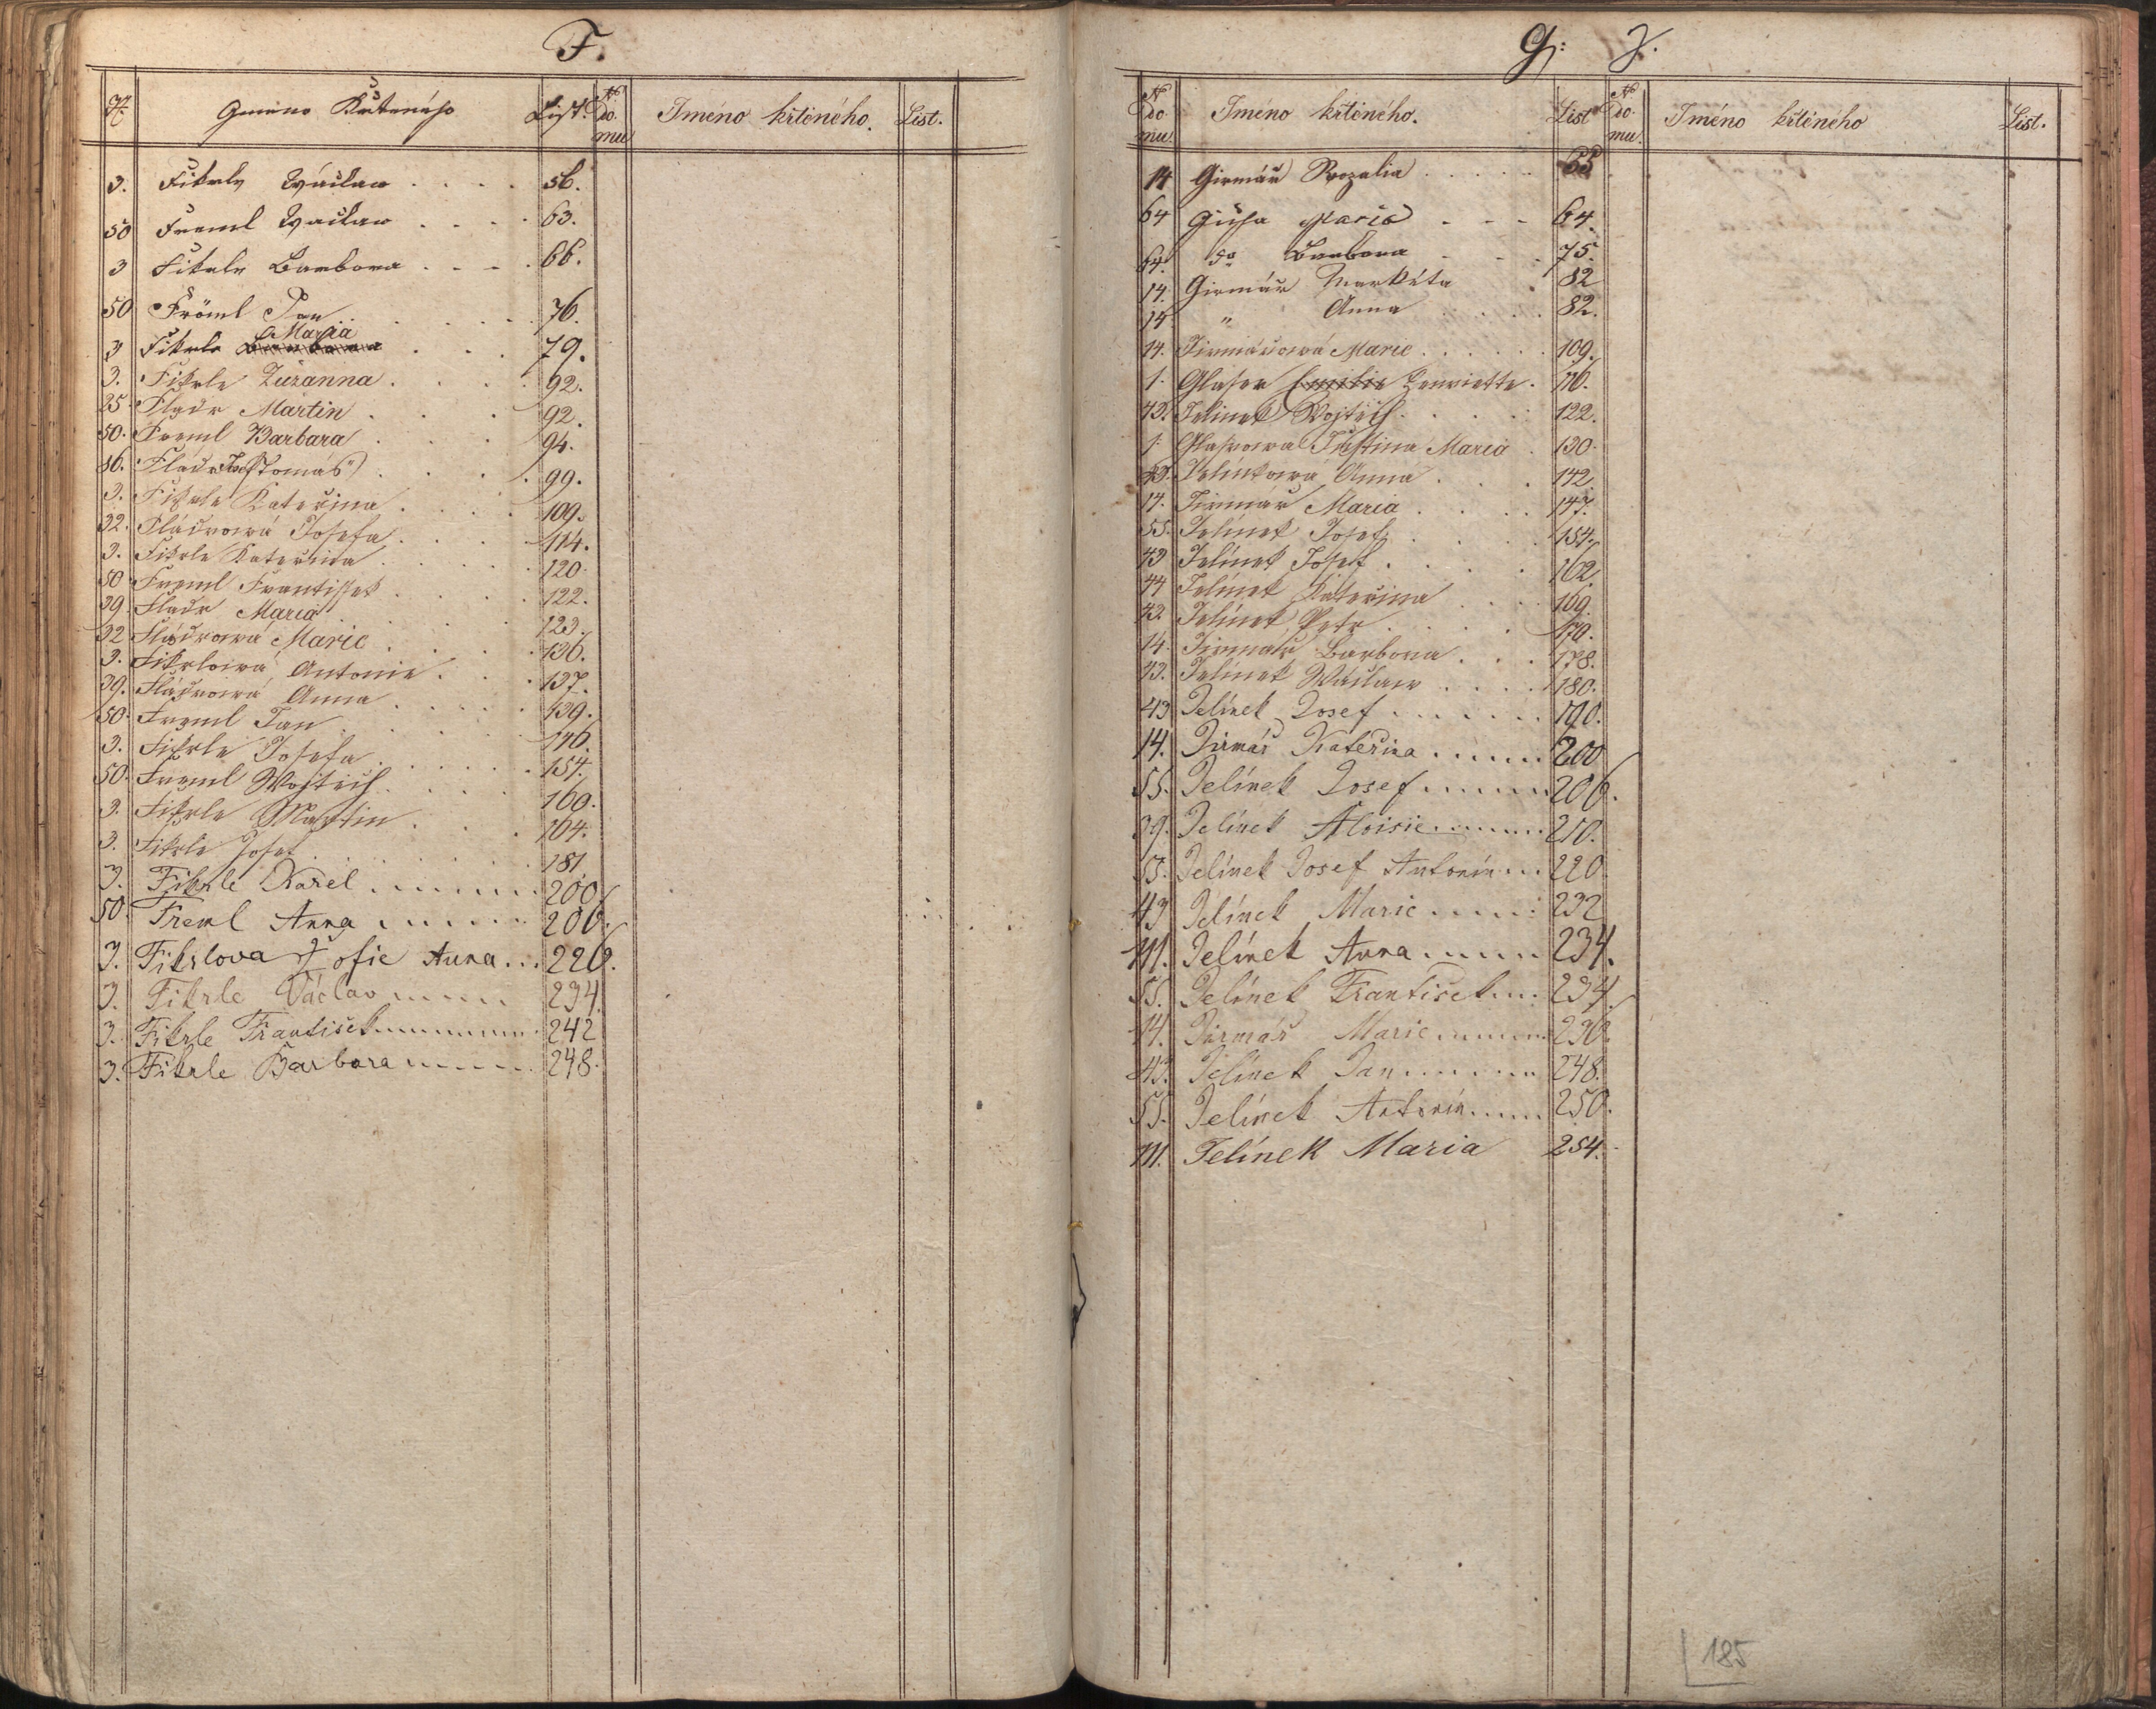 F.
Gméno Křtěného List. No Domu Jméno křtěného. List.
3. Fikrle Wáclaw . . . . 56.
50 Freml Waclaw . . . 63.
3 Fikrle Barbora . . . 66.
50 Fröml Jan . . . . 76.
Maria
3 Fikrle . . . 79.
3. Fikrle Zuzanna . . . . 92.
25 Fladr Martin . . . . 92.
50. Freml Barbara . . . 94.
86. Fladr Tomáš . . . . 99.
3. Fikrle Kateřina . . . . 109.
32. Fládrowá Josefa . . . . 114.
3. Fikrle Kateřina . . . . . 120.
50 Freml Frantissek . . . . 122.
39. Fladr Maria . . . . . 123.
32 Fládrowá Marie . . . . 136.
3. Fikrlowá Antonie . . . 137.
39. Fládrowá Anna . . . . . 139.
50. Freml Jan . . . . . 146.
3. Fikrle Josefa . . . . . . 154.
50. Freml Wojtěch . . . . 160.
3. Fikrle Martin . . . . 164.
3. Fikrle Josef . . . . . . 181
3. Fikrle Karel . . . . . . . 200.
50. Freml Anna . . . . . . 206.
3. Fikrlova Žofie Anna . . . 226.
3. Fikrle Václav . . . . . . 234.
3. Fikrle František . . . . . . . . 242
3. Fikrle Barbora . . . . . . 248.
G. J.
No Domu Jméno křtěného. List No Domu. Jméno křtěného List.
14 Girmář Rozalia . . . . . 65
64 Maria . . . 64.
64. do Barbora . . . 75.
14. Girmář Markéta . 82
14 " Anna . . . . . 82.
14. Jirmářowá Marie . . . . . . 109.
1. Glaser Emilie Henriette . 116.
43. Jelínek Wojtěch . . . . . 122.
1. Glaserowa Justina Maria . 130.
43. Jelínkowá Anna . . . . 142.
14. Jirmář Maria . . . . . 147.
55. Jelínek Josef . . . . . 154.
43 Jelínek Josef . . . . . 162.
44 Jelínek Kateřina . . . . 169.
43. Jelínek Petr . . . . . 170.
14. Jirmář Barbora . . . . 178.
43. Jelínek Wáclaw . . . . . 180.
43 Jelínek Josef . . . . . . . 190.
14. Jirmář Kateřina . . . . . . 200
55. Jelínek Josef . . . . . . . 206.
39. Jelínek Aloisie . . . . . . . 210.
55. Jelínek Josef Antonín . . . 220.
43 Jelínek Marie . . . . . 232
111. Jelínek Anna . . . . . . 234.
55. Jelínek František . . . 234.
14. Jirmář Marie . . . . . . . 236.
43. Jelínek Jan . . . . . . . 248.
55. Jelínek Antonín . . . . . 250.
111. Jelínek Maria 254.
185